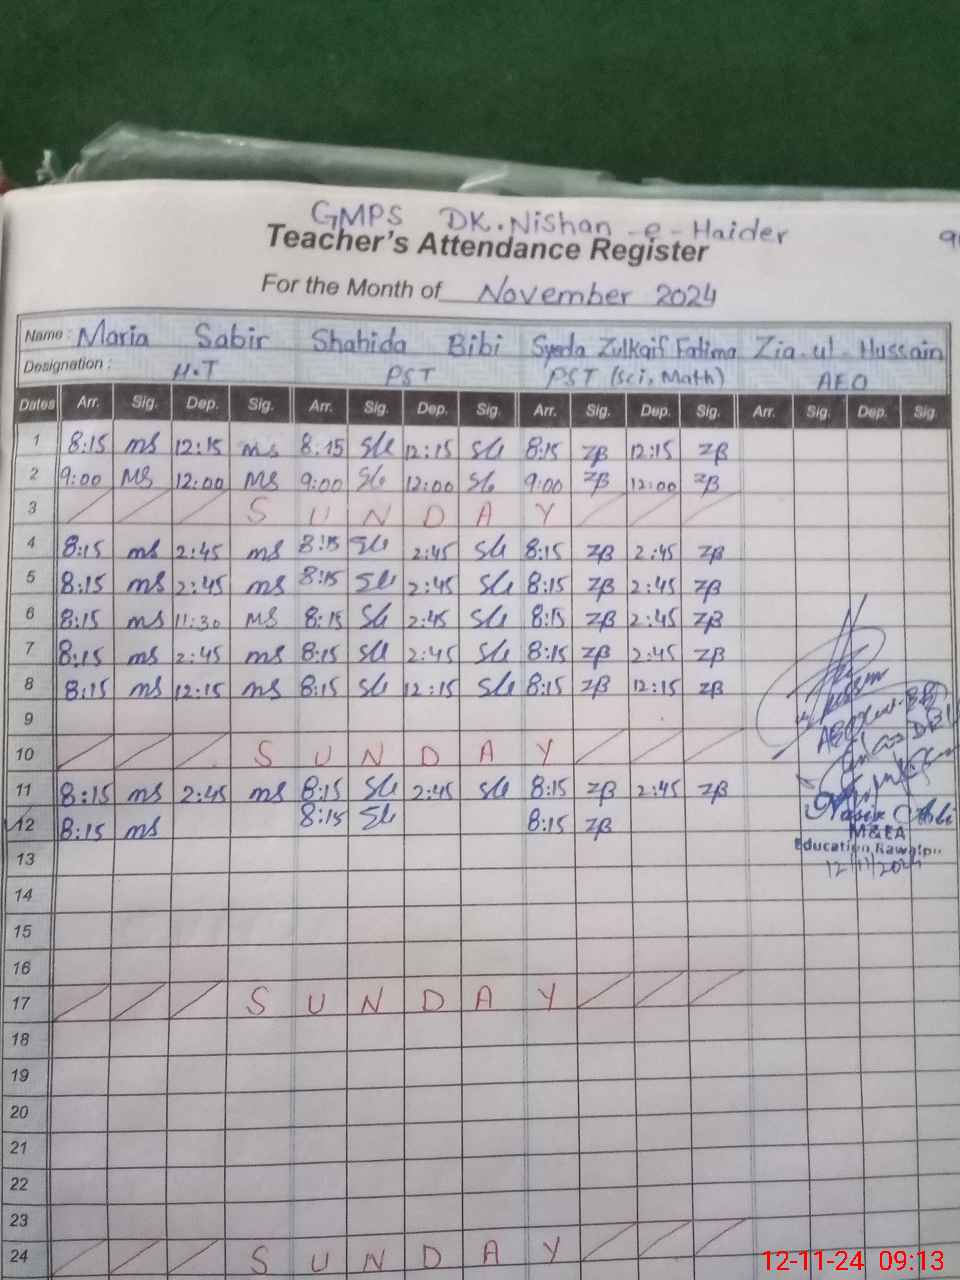 GMPS DK. Nishan-e-Haider
Teacher's Attendance Register
For the Month of November 2024
Name: Maria Sabir Shahida Bibi Syeda Zulkaif Fatima Zia-ul-Hussain
Designation: H.T PST PST (Sci, Math) AEO
Dates Arr. Sig. Dep. Sig. Arr. Sig. Dep. Sig. Arr. Sig. Dep. Sig. Arr. Sig. Dep. Sig.
1 8:15 ms 12:15 ms 8:15 12:15 8:15 ZB 12:15 ZB
2 9:00 MS 12:00 MS 9:00 12:00 9:00 ZB 12:00 ZB
3 S U N D A Y
4 8:15 ms 2:45 ms 8:15 2:45 8:15 ZB 2:45 ZB
5 8:15 ms 2:45 ms 8:15 2:45 8:15 ZB 2:45 ZB
6 8:15 ms 11:30 MS 8:15 2:45 8:15 ZB 2:45 ZB
7 8:15 ms 2:45 ms 8:15 2:45 8:15 ZB 2:45 ZB
8 8:15 ms 12:15 ms 8:15 12:15 8:15 ZB 12:15 ZB
9
10 S U N D A Y
11 8:15 ms 2:45 ms 8:15 2:45 8:15 ZB 2:45 ZB
12 8:15 ms 8:15 8:15 ZB
M&EA
13
Education, Rawalpin
12/11/2024
14
15
16
17 S U N D A Y
18
19
20
21
22
23
24 S U N D A Y
12-11-24 09:13